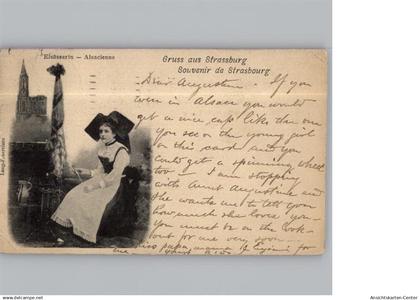 Elsässerin – Alsacienne
Gruss aus Strassburg
Souvenir de Strasbourg
Dear Augustine – If you
were in Alsace you would
get a nice cap like the one
you see on the young girl
on this card and you
could get a spinning wheel
too – I am stopping
with Aunt Augustine and
she wants me to tell you
how much she loves you –
You must be on the look-
out for me very soon –
Kiss papa, mama & for
me
Ansichtskarten-Center.com